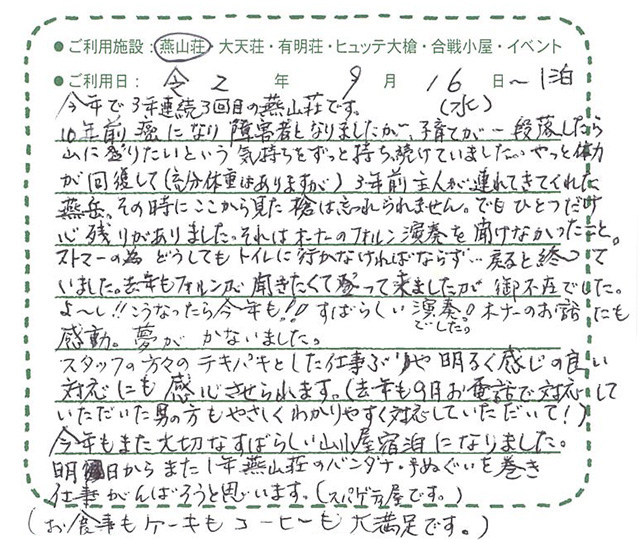 ● ご利用施設：燕山荘・大天荘・有明荘・ヒュッテ大槍・合戦小屋・イベント
● ご利用日：令2年9月16日～1泊
(水)
今年で3年連続3回目の燕山荘です。
10年前癌になり障害者となりましたが、子育てが一段落したら
山に登りたいという気持ちをずっと持ち続けていました。やっと体力
が回復して(充分体重はありますが)3年前主人が連れてきてくれた
燕岳。その時にここから見た槍は忘れられません。でもひとつだけ
心残りがありました。それはオーナーのフォルン演奏を聞けなかったこと。
ストマーの為どうしてもトイレに行かなければならず…戻ると終って
いました。去年もフォルンが聞きたくて登って来ましたが御不在でした。
よ～し!!こうなったら今年も!!すばらしい演奏!でした。オーナーのお話にも
感動。夢がかないました。
スタッフの方々のテキパキとした仕事ぶりや明るく感じの良い
対応にも感心させられます。(去年も9月お電話で対応して
いただいた男の方もやさしくわかりやすく対応していただいて!)
今年もまた大切なすばらしい山小屋宿泊になりました。
明日からまた1年燕山荘のバンダナ・手ぬぐいを巻き
仕事がんばろうと思います。(スパゲティ屋です。)
(お食事もケーキもコーヒーも大満足です。)